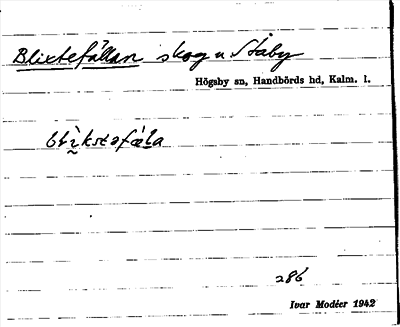 Blixtefällan skog u Ståby
Högsby sn, Handbörds hd, Kalm. l.
286
Ivar Modéer 1942